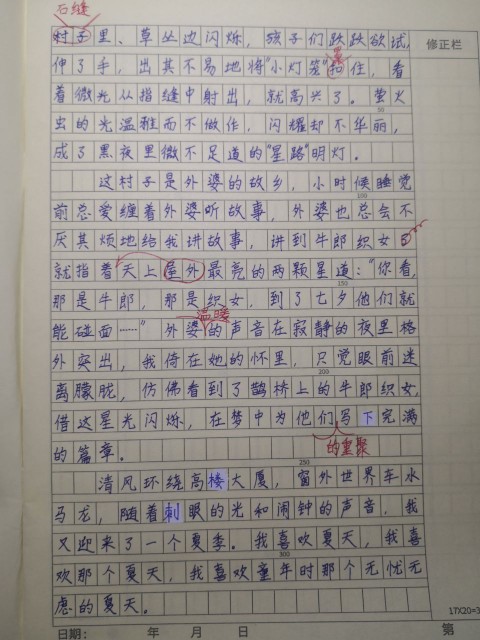 石缝
村子里、草丛边闪烁，孩子们跃跃欲试，
修正栏
罩
伸了手，出其不易地将“小灯笼”扣住，看
着微光从指缝中射出，就高兴了。萤火
虫的光温雅而不做作，闪耀却不华丽，
成了黑夜里微不足道的“星路”明灯。
这村子是外婆的故乡，小时候睡觉
100
前总爱缠着外婆听故事，外婆也总会不
厌其烦地给我讲故事，讲到牛郎织女
就指着天上屋外最亮的两颗星道：“你看，
150
那是牛郎，那是织女，到了七夕他们就
温暖
能碰面……”外婆的声音在寂静的夜里格
外突出，我倚在她的怀里，只觉眼前迷
200
离朦胧，仿佛看到了鹊桥上的牛郎织女，
借这星光闪烁，在梦中为他们写下完满
的重聚
的篇章。
250
清风环绕高楼大厦，窗外世界车水
马龙，随着刺眼的光和闹钟的声音，我
又迎来了一个夏季。我喜欢夏天，我喜
300
欢那个夏天，我喜欢童年时那个无忧无
虑的夏天。
17X20=3
日期： 年 月 日 第